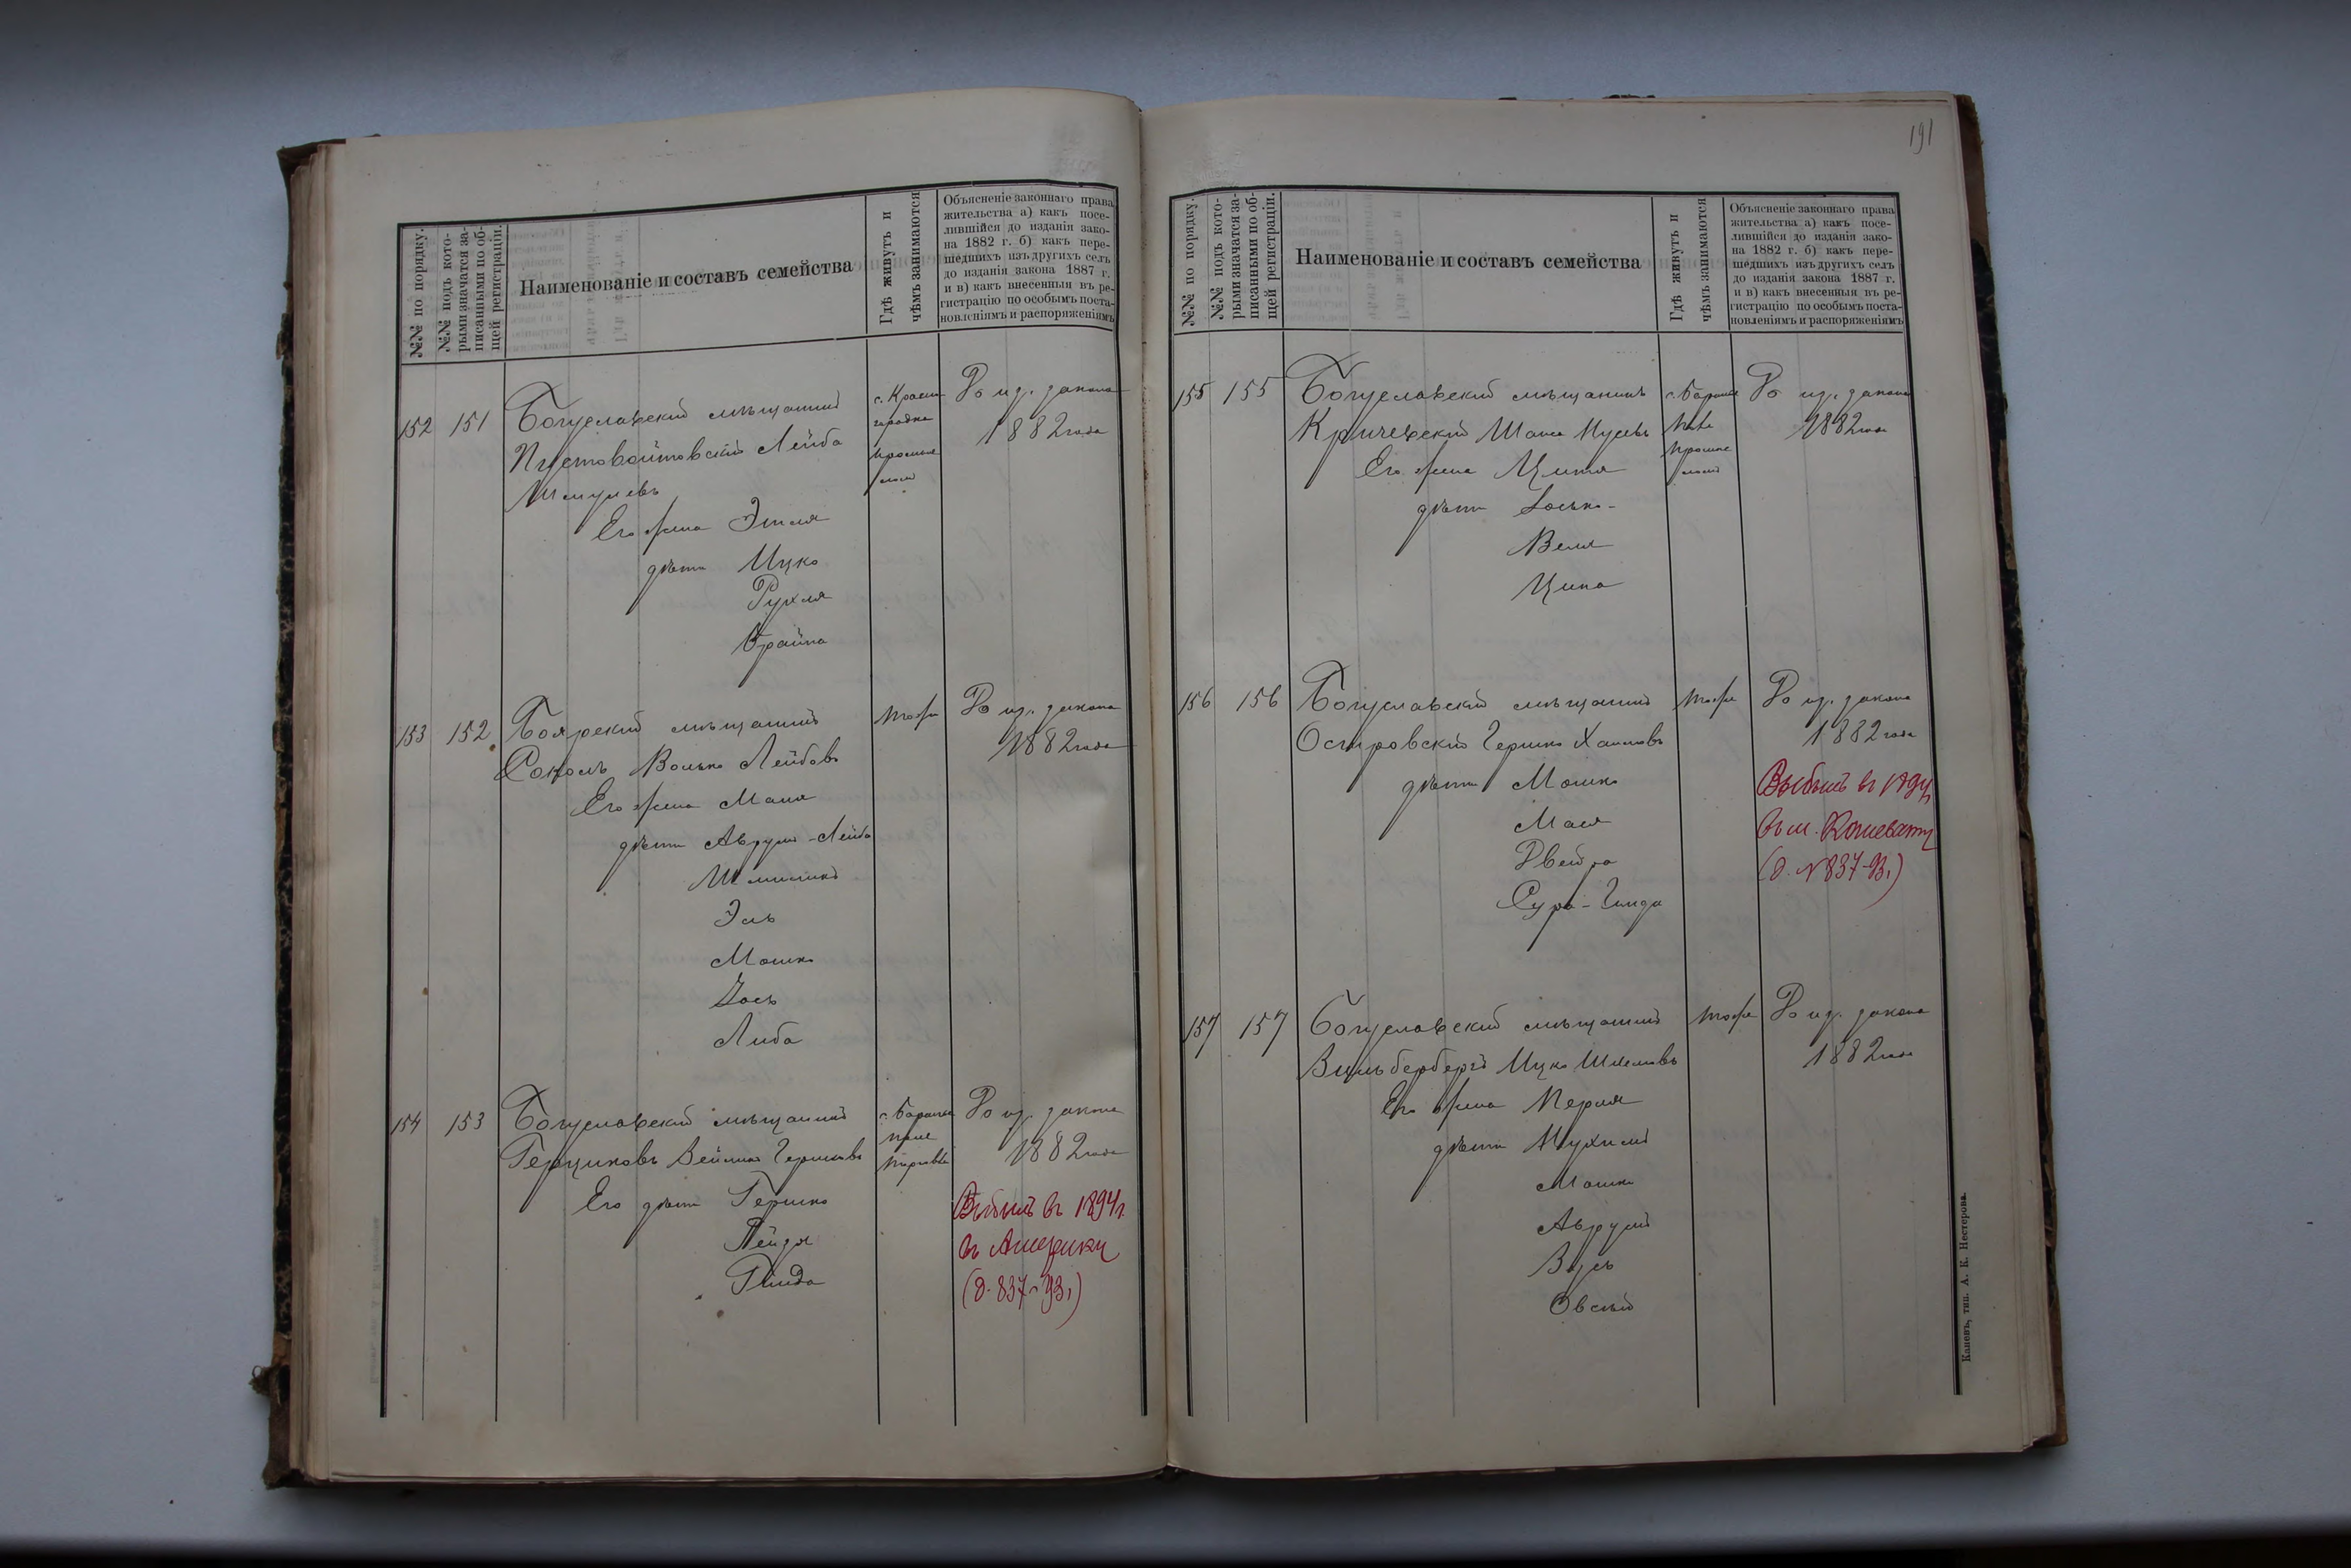 №№ по порядку.
№№ подъ кото-
рыми значатся за-
писанными по об-
щей регистраціи.
Наименованіе и составъ семейства
Гдѣ живутъ и
чѣмъ занимаются
Объясненіе законнаго права
жительства а) какъ посе-
лившійся до изданія зако-
на 1882 г. б) какъ пере-
шедшихъ изъ другихъ селъ
до изданія закона 1887 г.
и в) какъ внесенныя въ ре-
гистрацію по особымъ поста-
новленіямъ и распоряженіямъ
152 151 Богуславскій мѣщанинъ
Пустовойтовскій Лейба
Шмулевъ
Его жена Этля
дѣти Ицко
Рухля
Брайна
До из. закона
1882 года
153 152 Боярскій мѣщанинъ
Соколъ Волько Лейбовъ
Его жена Маня
дѣти Аврумъ-Лейба
Эль
Мошко
Іось
Либа
тоже
До из. закона
1882 года
154 153 Богуславскій мѣщанинъ
Герциковъ Вейлико Гершковъ
Его дѣти Гершко
Пейдя
Гинда
торговлѣ
До из. закона
1882 года
Выбылъ въ 1894 г.
въ Америку
(д. 837-93.)
191
№№ по порядку.
№№ подъ кото-
рыми значатся за-
писанными по об-
щей регистраціи.
Наименованіе и составъ семейства
Гдѣ живутъ и
чѣмъ занимаются
Объясненіе законнаго права
жительства а) какъ посе-
лившійся до изданія зако-
на 1882 г. б) какъ пере-
шедшихъ изъ другихъ селъ
до изданія закона 1887 г.
и в) какъ внесенныя въ ре-
гистрацію по особымъ поста-
новленіямъ и распоряженіямъ
155 155 Богуславскій мѣщанинъ
Кричевскій Шая Мусевъ
Его жена Ципя
дѣти Іосько
Веля
Ципа
До из. закона
1882 года
156 156 Богуславскій мѣщанинъ
Островскій Гершко Хаимовъ
дѣти Мошко
Мася
Двейра
Сура-Гинда
тоже
До из. закона
1882 года
Выбылъ въ
въ м. Кошевату
(д. № 837-93.)
157 157 Богуславскій мѣщанинъ
Зильбербергъ Ицко Шлемовъ
Его жена Перля
дѣти Нухимъ
Мошко
Аврумъ
Овсій
тоже
До из. закона
1882 года
Каневъ, тип. А. К. Нестерова.